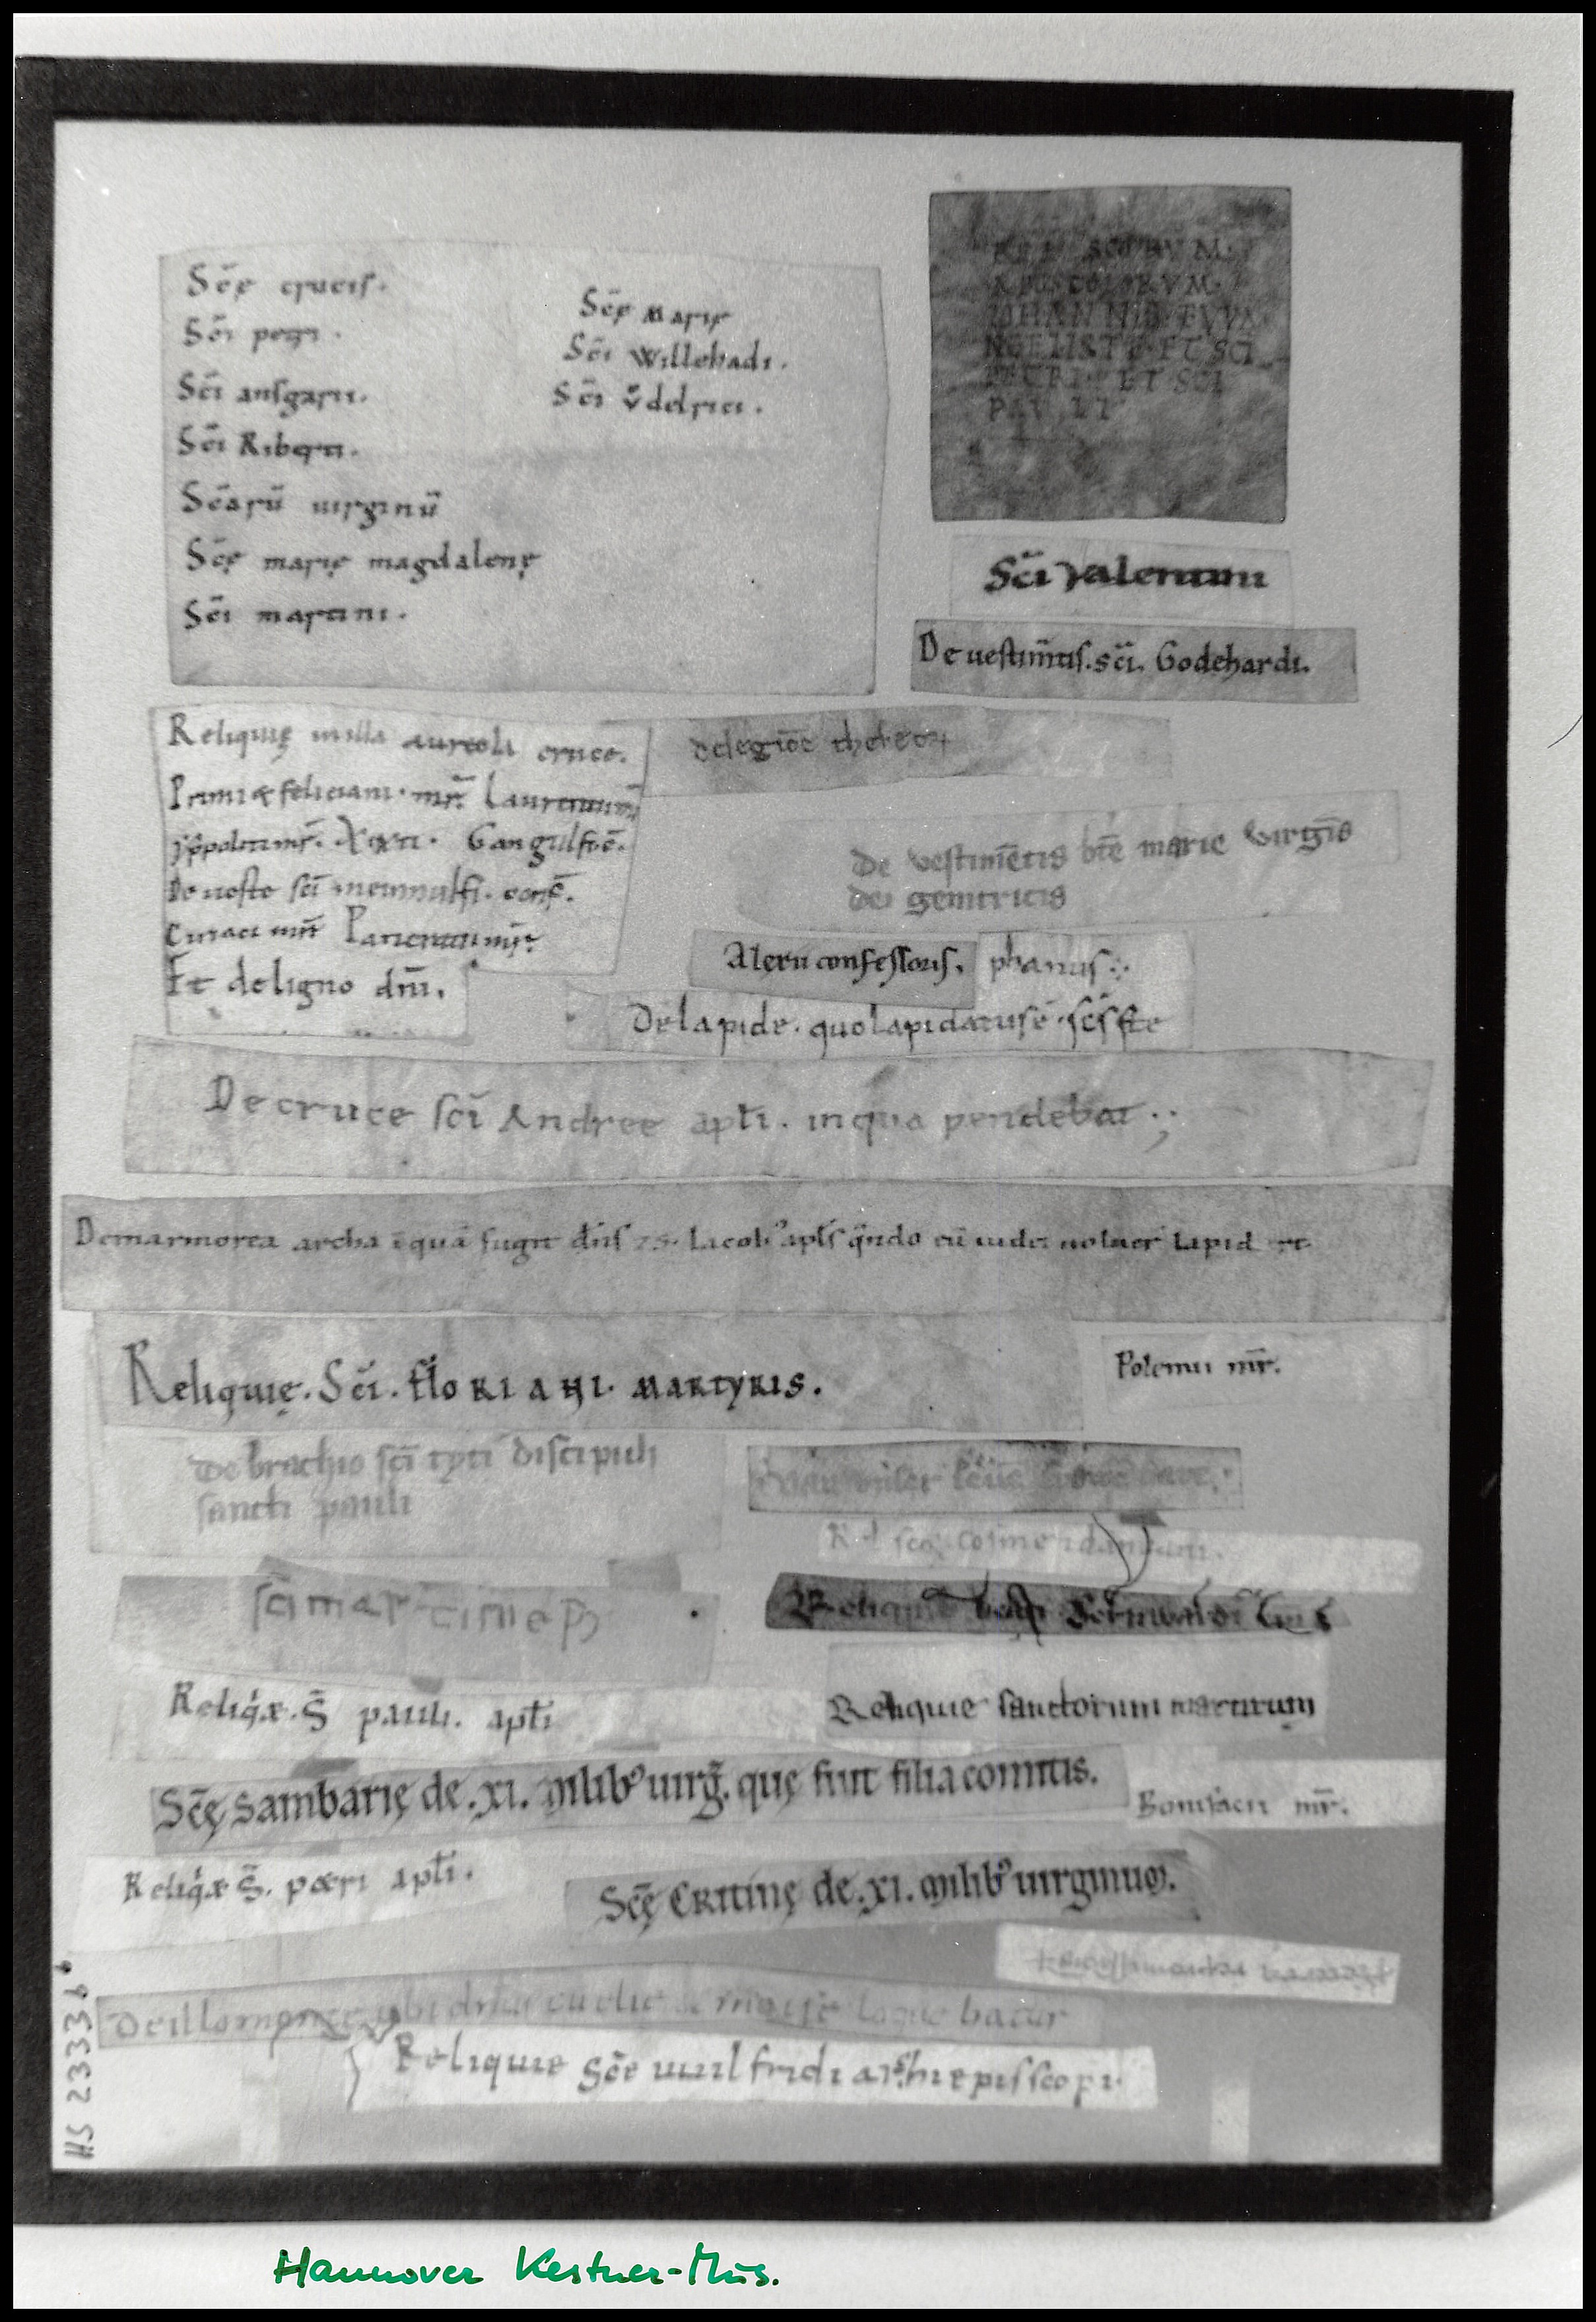 Scę̄ crucis.
Sci̅ petri.
Sci̅ ansgarii.
Sci̅ Ribęrti.
Scārū uirginū
Scę̄ marię magdalenę
Sci̅ martini.
Scę̄ Marię
Sci̅ Willehadi.
Sci̅ Ǒdelrici.
REL SCORVM.
APOSTOLORVM.
IOHANNIS EVVA
NGELISTĘ ET SCI
PETRI ET SCI
PAVLI
Sci̅ Valentini
De uestim̅tis. sci̅. Godehardi.
Reliquię in illa aureola cruce.
Primi & feliciani. mr̅. Laurentii mr̅
yppoliti mr̅. Xixti. Gangulfi c̅.
De ueste sci̅ meinnulfi. conf̅.
Ciriaci mr̅ Pancratii mr̅.
Et de ligno dn̅i.
de legiōe theboꝝ
De vestimētis btē marie virgīs
dei genitricis
Alexii confessoris.
phanus
De lapide. quo lapidatus ē. sc̅s ste
De cruce sci̅ Andree apl̅i. in qua pendebat.;
De marmorea archa ī quā fugit dn̅s Iacobꝰ apl̅s qn̅do eū iudei uoluer̅ lapid
Reliquię. Sci̅. floriani. martyris.
Polemii mr̅.
De brachio sci̅ tyti discipuli
sancti pauli
Rel scoꝝ cosme & damiani.
sci̅ martini ep̅
Reliquie beati Bernwardi
Reliq̇æ. S̅ pauli. apl̅i
Reliquie sanctorum martirum
Scę̄ Sambarię de. xi. milibꝰ uirg̅. quę fuit filia comitis.
Bonifacii mr̅.
Reliq̇æ S̅. pætri apl̅i.
Scę̄ Cristinę de. xi. milibꝰ uirginum.
De illo monte ubi dn̅s cū elie & moise loquebatur
Reliquie Scē uuilfridi archiepisscopi.
HS 23336 b
Hannover Kestner-Mus.